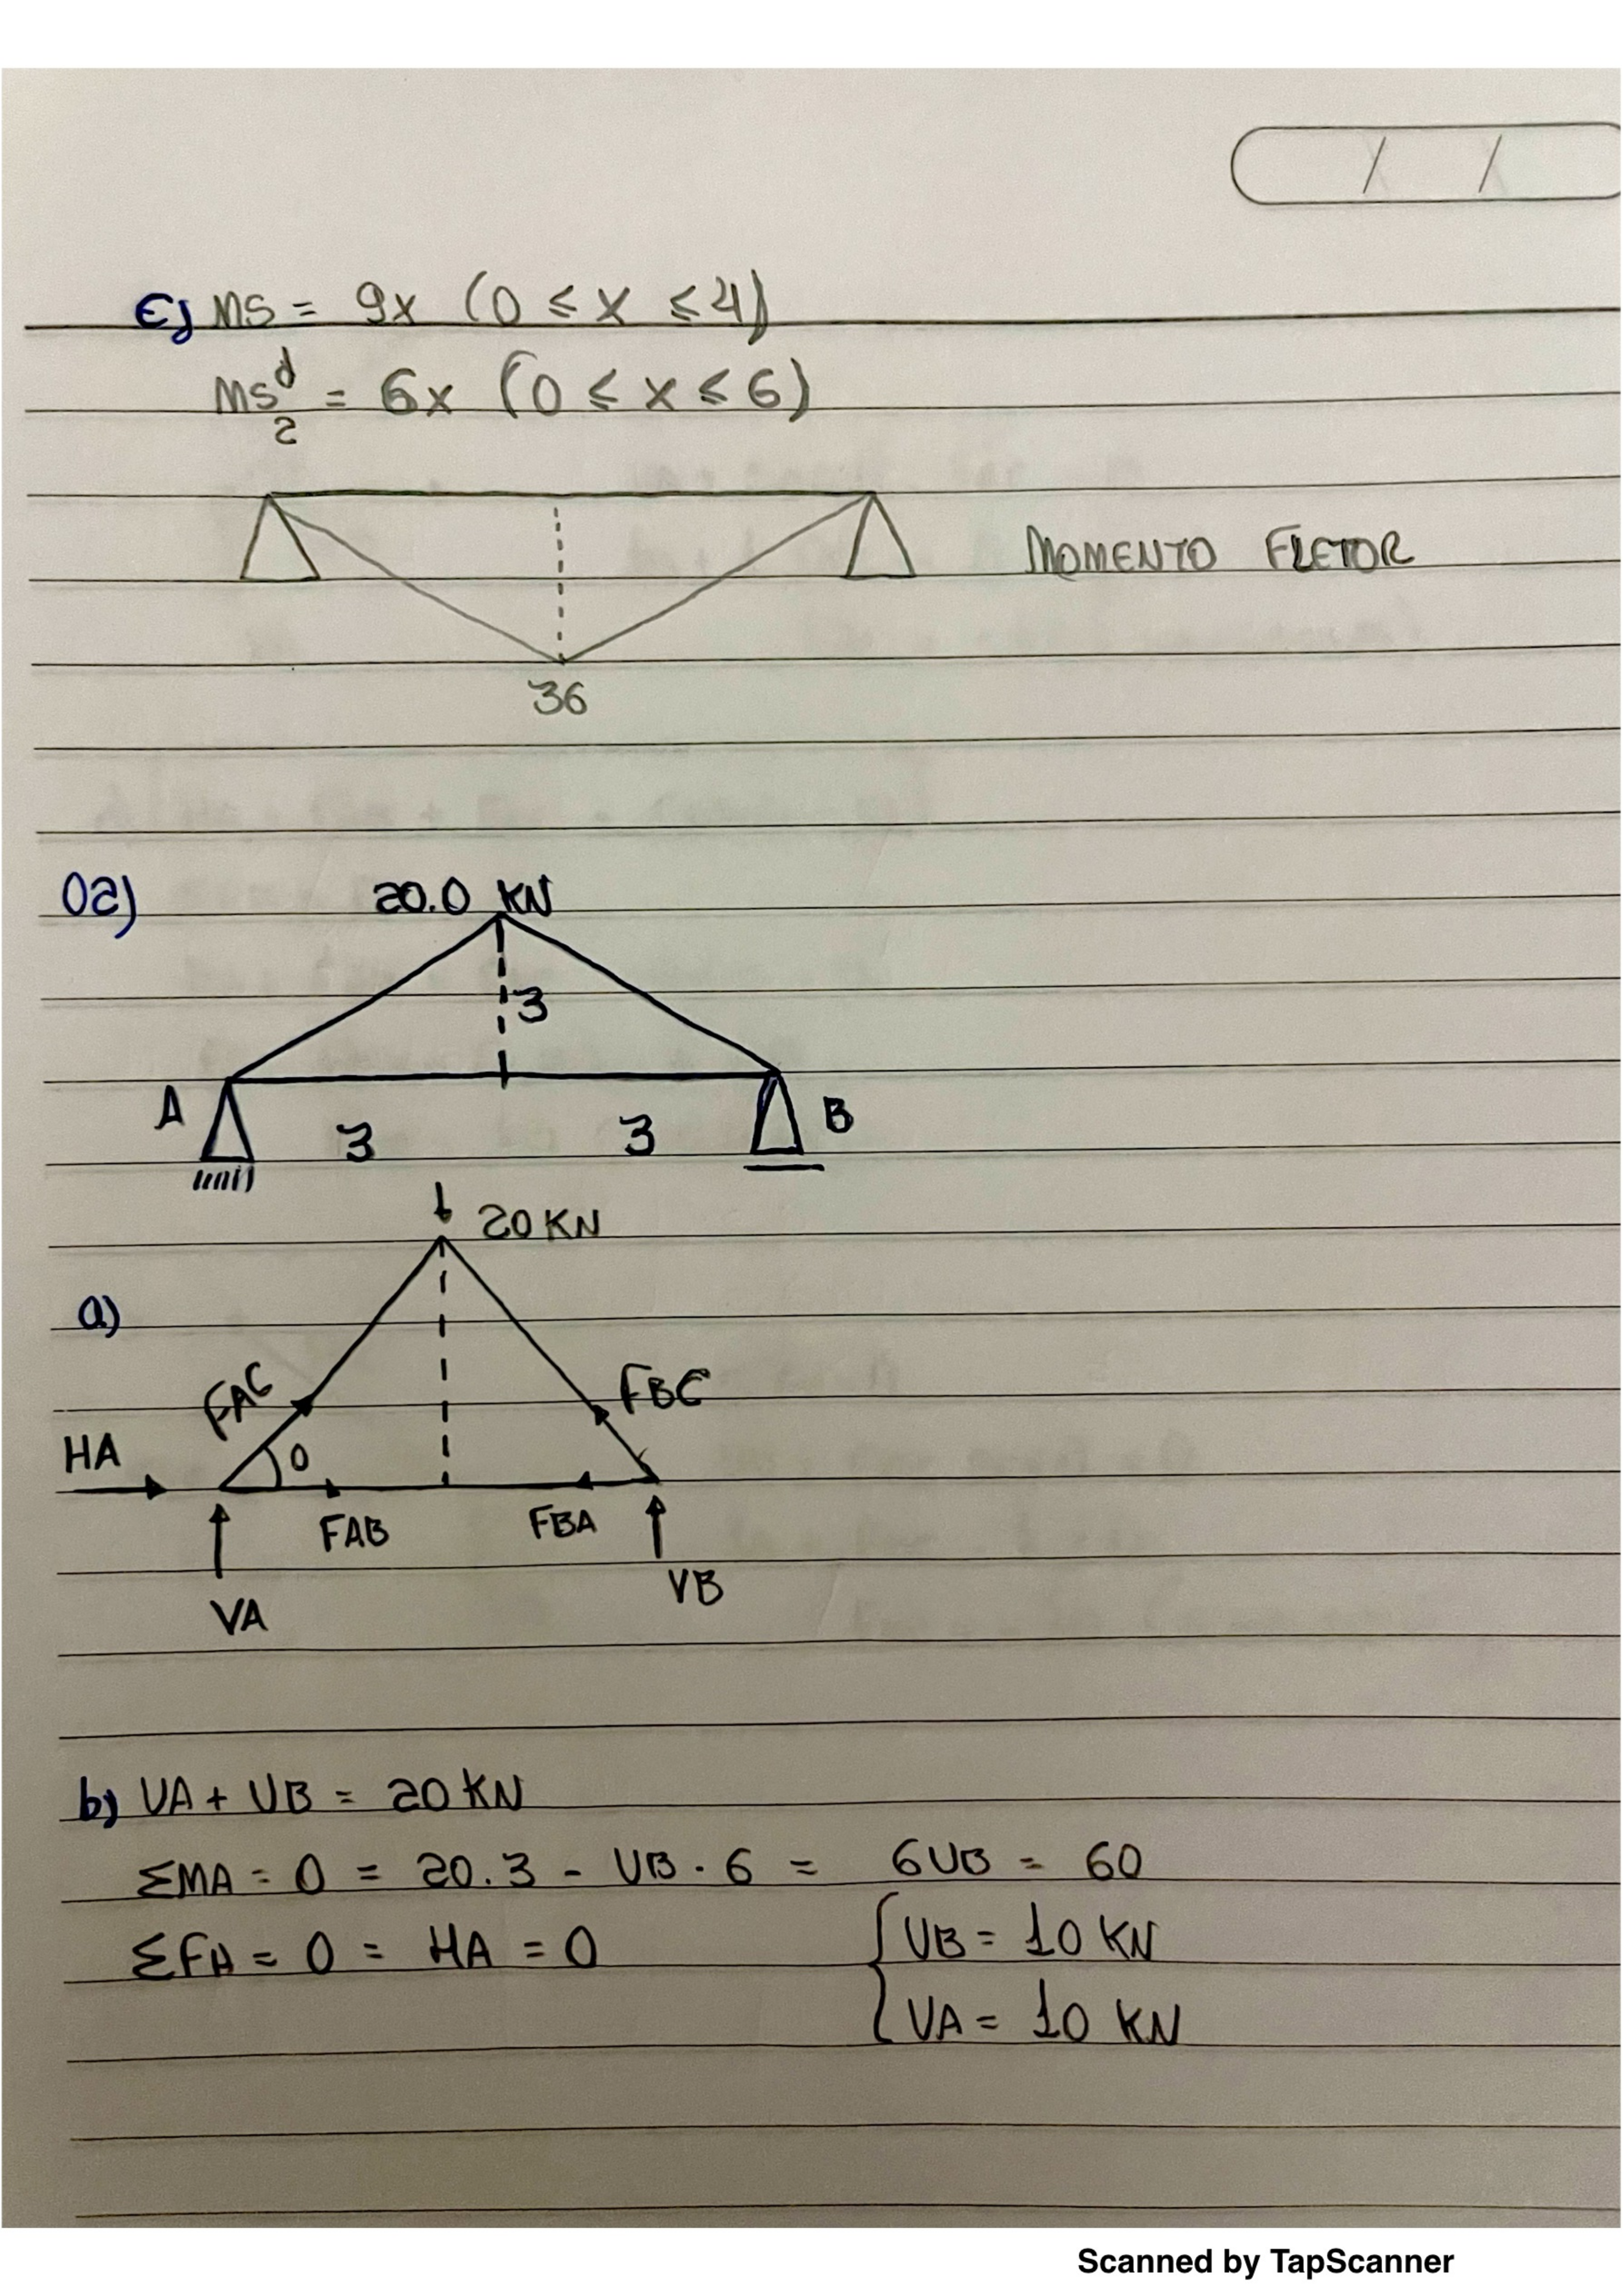 / /
c) MS = 9x (0 ≤ x ≤ 4)
MS₂ᵈ = 6x (0 ≤ x ≤ 6)
MOMENTO FLETOR
36
02)
20.0 KN
3
A
3
3
B
20 KN
a)
FAC
FBC
HA
θ
FAB
FBA
VA
VB
b) VA + VB = 20 KN
ΣMA = 0 = 20.3 - VB . 6 = 6VB = 60
ΣFH = 0 = HA = 0
VB = 10 KN
VA = 10 KN
Scanned by TapScanner